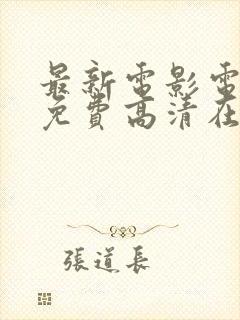 最新電影電
免費高清在
張道長